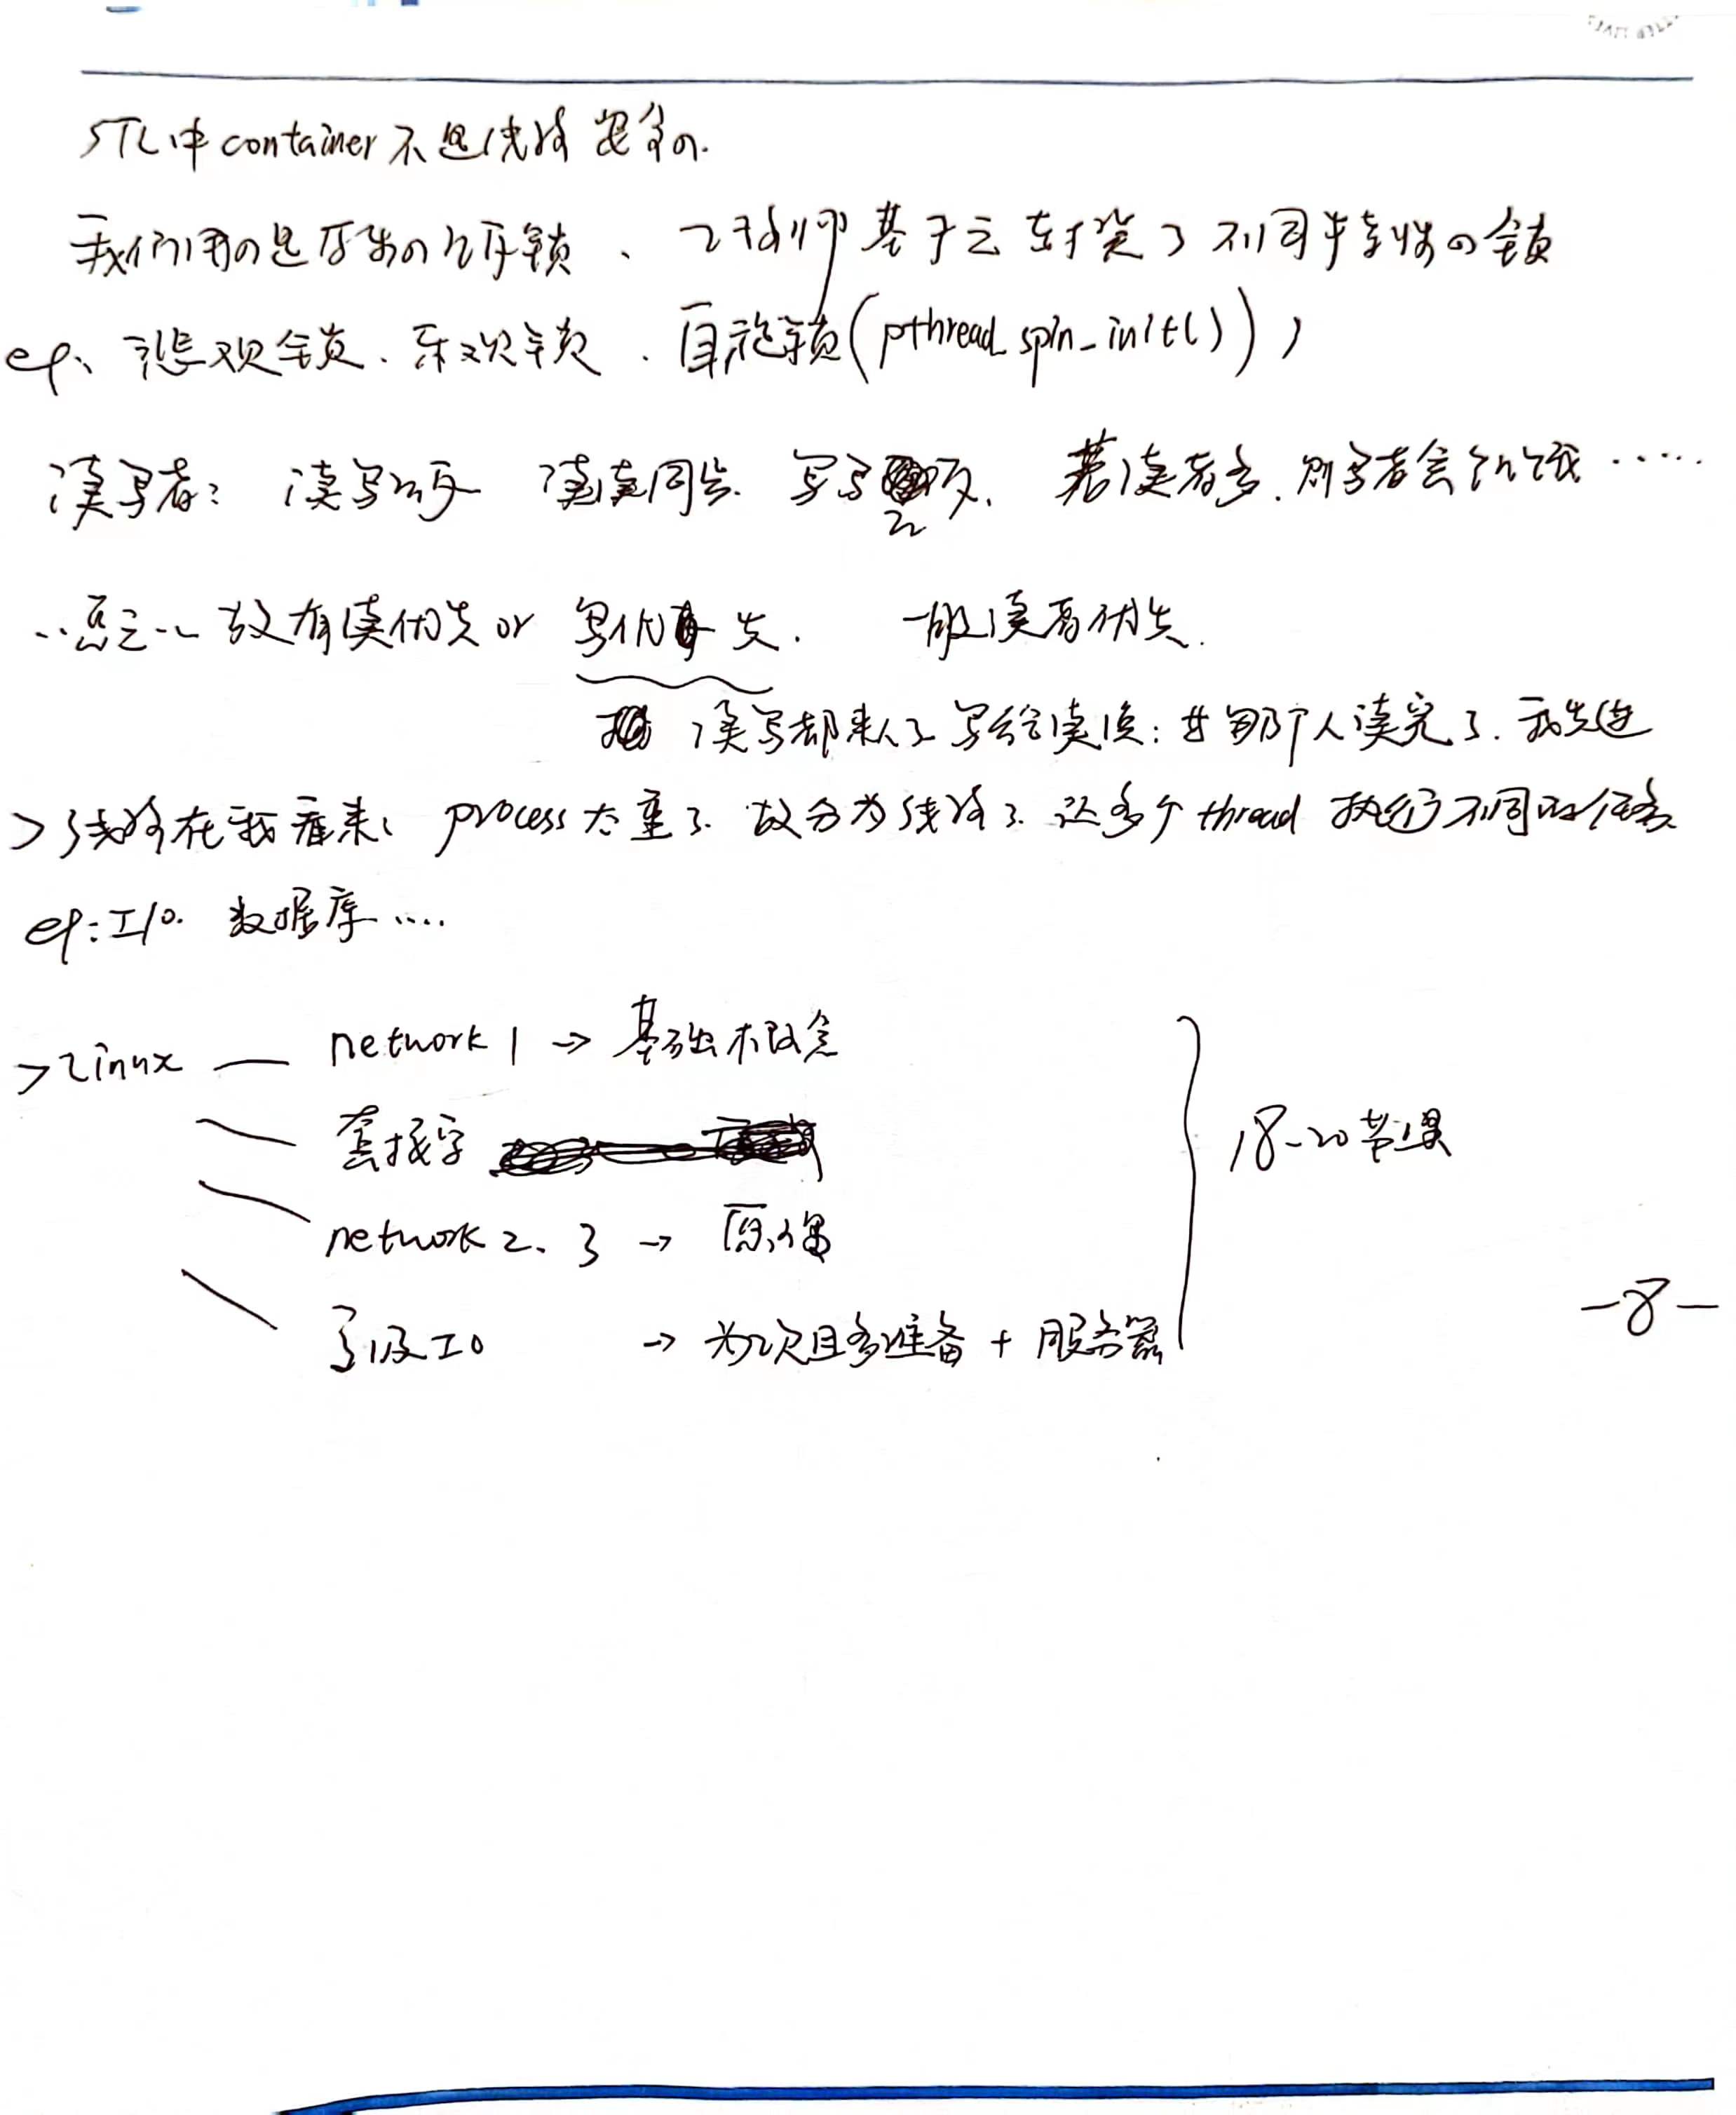 STL中container不是线程安全的.
我们用的是原生的互斥锁、工程师基于之封装了不同特性的锁
eg、悲观锁、乐观锁、自旋锁(pthread_spin_init())
读写者: 读写互斥 读读同步. 写写互斥. 若读者多,则写者会饥饿……
..总之.. 故有读优先 or 写优先. 一般读者优先.
读写都来了写给读说:等那个人读完了.我先进
>线程在我看来: process太重了.故分为线程了.让多个thread执行不同的任务
eg:I/O. 数据库….
>Linux — network 1 → 基础概念
套接字
18-20节课
network 2、3 → 原理
-8-
高级IO → 为项目多准备 + 服务器